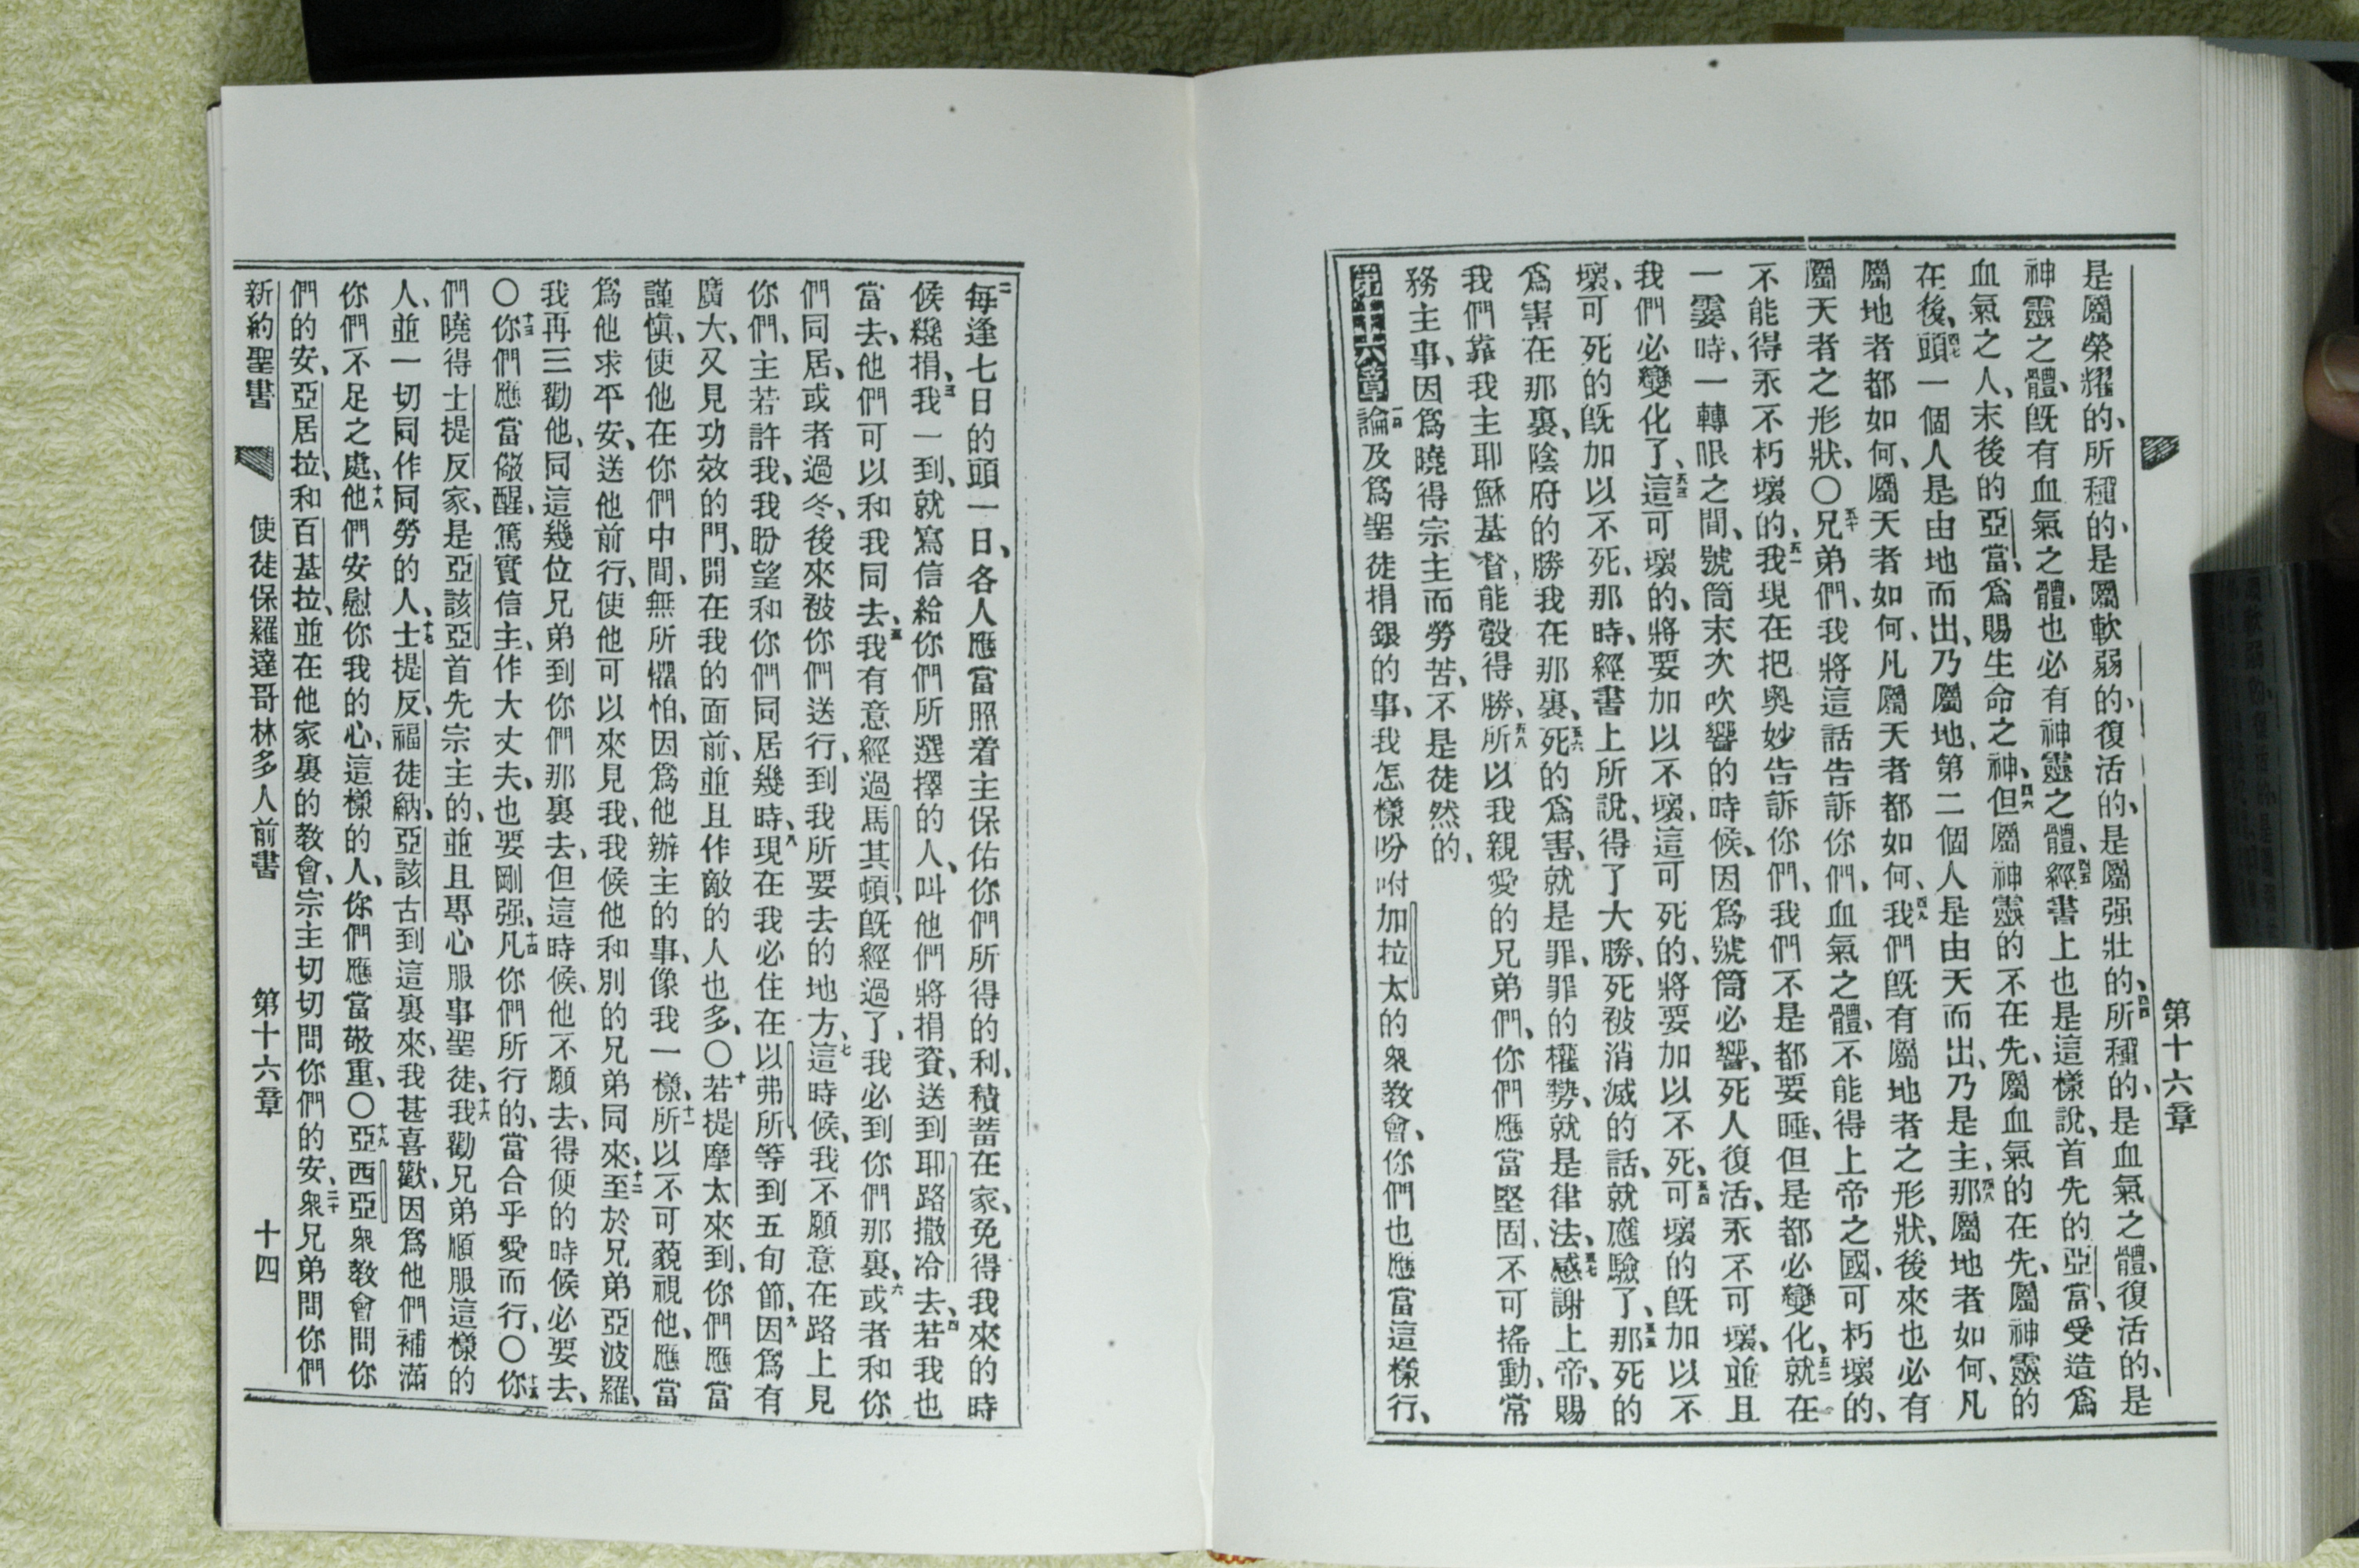 第十六章
是屬榮耀的、所種的、是屬軟弱的、復活的、是屬强壯的、四四所種的、是血氣之體、復活的、是
神靈之體、旣有血氣之體、也必有神靈之體、四五經書上也是這樣說、首先的亞當、受造爲
血氣之人、末後的亞當、爲賜生命之神、四六但屬神靈的不在先、屬血氣的在先、屬神靈的
在後、四七頭一個人是由地而出、乃屬地、第二個人是由天而出、乃是主、四八那屬地者如何、凡
屬地者都如何、屬天者如何、凡屬天者都如何、四九我們旣有屬地者之形狀、後來也必有
屬天者之形狀、〇五十兄弟們、我將這話告訴你們、血氣之體、不能得上帝之國、可朽壞的、
不能得不朽壞的、五一我現在把奧妙告訴你們、我們不是都要睡、但是都必變化、五二就在
一霎時、一轉眼之間、號筒末次吹響的時候、因爲號筒必響、死人復活、永不可壞、並且
我們必變化了、五三這可壞的、將要加以不壞、這可死的、將要加以不死、五四可壞的旣加以不
壞、可死的旣加以不死、那時、經書上所說、得了大勝、死被消滅的話、就應驗了、五五那死的
爲害在那裏、陰府的勝我在那裏、五六死的爲害、就是罪、罪的權勢、就是律法、五七感謝上帝、賜
我們靠我主耶穌基督、能彀得勝、五八所以我親愛的兄弟們、你們應當堅固、不可搖動、常
務主事、因爲曉得宗主而勞苦、不是徒然的、
第十六章一論及爲聖徒捐銀的事、我怎樣吩咐加拉太的衆教會、你們也應當這樣行、
二每逢七日的頭一日、各人應當照着主保佑你們所得的利、積蓄在家、免得我來的時
候纔捐、三我一到、就寫信給你們所選擇的人、叫他們將捐資、送到耶路撒冷去、四若我也
當去、他們可以和我同去、五我有意經過馬其頓、旣經過了、我必到你們那裏、六或者和你
們同居、或者過冬、後來被你們送行、到我所要去的地方、七這時候、我不願意在路上見
你們、主若許我、我盼望和你們同居幾時、八現在我必住在以弗所、等到五旬節、九因爲有
廣大、又見功效的門、開在我的面前、並且作敵的人也多、〇十若提摩太來到、你們應當
謹愼、使他在你們中間、無所懼怕、因爲他辦主的事、像我一樣、十一所以不可藐視他、應當
爲他求平安、送他前行、使他可以來見我、我候他和別的兄弟同來、十二至於兄弟亞波羅、
我再三勸他、同這幾位兄弟到你們那裏去、但這時候、他不願去、得便的時候必要去、
〇十三你們應當儆醒、篤實信主、作大丈夫、也要剛强、十四凡你們所行的、當合乎愛而行、〇十五你
們曉得士提反家、是亞該亞首先宗主的、並且專心服事聖徒、十六我勸兄弟順服這樣的
人、並一切同作同勞的人、十七士提反、福徒納、亞該古到這裏來、我甚喜歡、因爲他們補滿
你們不足之處、十八他們安慰你我的心、這樣的人、你們應當敬重、〇十九亞西亞衆教會問你
們的安、亞居拉、和百基拉、並在他家裏的教會、宗主切切問你們的安、二十衆兄弟問你們
新約聖書 使徒保羅達哥林多人前書 第十六章 十四